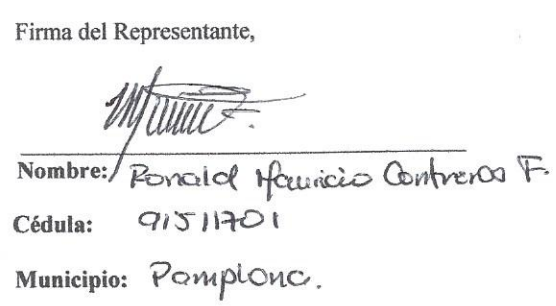 Firma del Representante,
Nombre: Ronald Mauricio Contreras F.
Cédula: 91511701
Municipio: Pamplona.